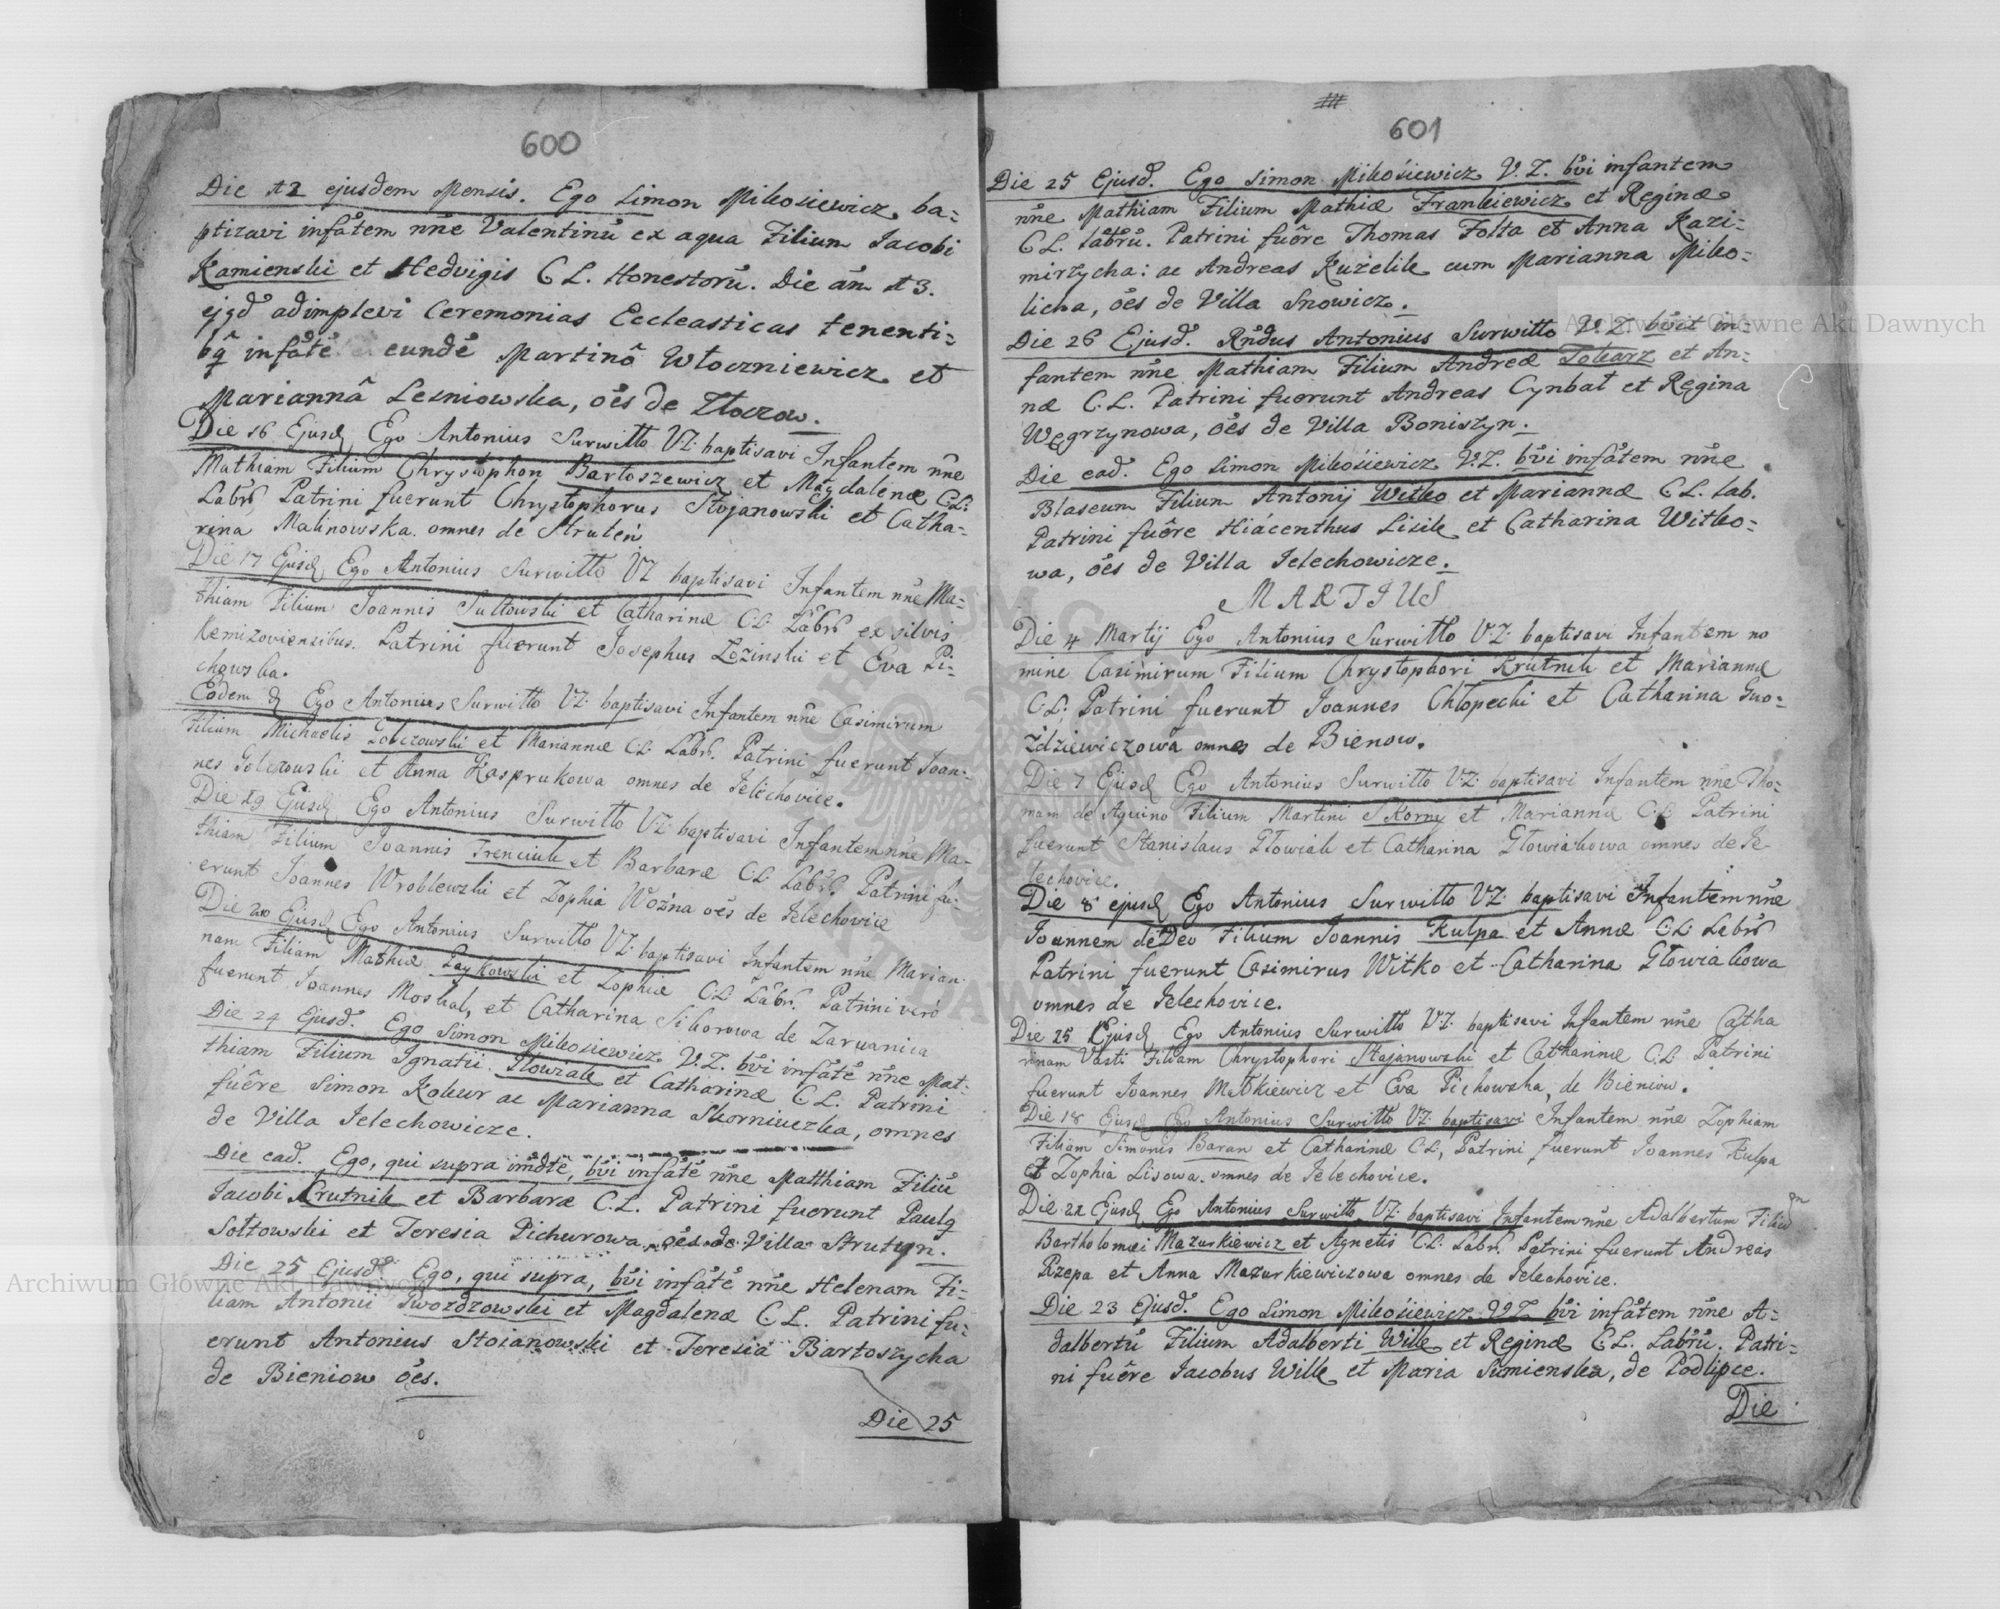 600
Die 12 ejusdem Mensis. Ego Simon Mikosiewicz ba=
ptizavi infãtem nñe Valentinũ ex aqua Filium Jacobi
Kamienski et Hedvigis C L. Honestorũ. Die añ 13.
ejgd adimplevi Ceremonias Eccleasticas tenenti=
bq infãtẽ eundẽ Martinô Wloczniewicz et
Mariannâ Lesniowska, oẽs de Złoczow.
Die 16 Ejusd Ego Antonius Surwitto VZ: baptisavi Infantem nñe
Mathiam Filium Chrystophori Bartoszewicz et Magdalenæ C.L:
Labrũ Patrini fuerunt Chrystophorus Stojanowski et Catha=
rina Malinowska. omnes de Struteń
Die 17 Ejusd Ego Antonius Surwitto VZ baptisavi Infantem nñe Ma=
thiam Filium Joannis Sultowski et Catharinæ C:L: Labrũ ex silvis
Kemizoviensibus. Patrini fuerunt Josephus Łozinski et Eva Pi=
chowska.
Eodem d Ego Antonius Surwitto VZ: baptisavi Infantem nñe Casimirum
Filium Michaelis Golczowski et Mariannæ C:L: Labrũ. Patrini fuerunt Joan=
nes Golczowski et Anna Kasprukowa omnes de Jelechovice.
Die 19 Ejusd Ego Antonius Surwitto VZ: baptisavi Infantem nñe Ma=
thiam Filium Joannis Trenciuk et Barbaræ C:L: Labrũ. Patrini fu=
erunt Joannes Wroblewski et Zophia Woźna oẽs de Jelechovice
Die 20 Ejusd Ego Antonius Surwitto VZ: baptisavi Infantem nñe Marian
nam Filiam Mathiæ et Zophiæ C:L: Labrũ. Patrini verò
fuerunt Joannes Moskal, et Catharina Sikorowa de Zarvanica
Die 24 Ejusd. Ego Simon Mikosiewicz V.Z. bvi infãtẽ nñe Mat=
thiam Filium Ignatii Głowiak et Catharinæ C.L. Patrini
fuêre Simon Kokur ac Marianna Skorniuczka, omnes
de Villa Jelechowicze.
Die ead. Ego, qui supra im̃dtẽ, bvi infãtẽ nñe Matthiam Filiũ
Jacobi Krutnik et Barbaræ C.L. Patrini fuerunt Paulq
Sołtowski et Teresia Pichurowa, oẽs de Villa Strutyn.
Die 25 Ejusd Ego, qui supra, bvi infãtẽ nñe Helenam Fi=
liam Antonii Gwozdzowski et Magdalenæ C.L. Patrini fu=
erunt Antonius Stoianowski et Teresia Bartoszycha
de Bieniow oẽs.
Die 25
601
Die 25 Ejusd. Ego Simon Mikosiewicz V.Z. bvi infantem
nñe Mathiam Filium Mathiæ Frankiewicz et Reginæ
C.L. lãbrũ. Patrini fuêre Thomas Folta et Anna Kazi=
mirzycha: ac Andreas Kuzelik cum Marianna Miko=
licha, oẽs de Villa Snowicz.
Die 26 Ejusd. Rñdus Antonius Surwitto V.Z. bvit in=
fantem nñe Mathiam Filium Andreæ Tokarz et An=
næ C.L. Patrini fuerunt Andreas Cynbał et Regina
Węgrzynowa, oẽs de Villa Boniszyn.
Die ead. Ego Simon Mikosiewicz V.Z. bvi infãtem nñe
Blaseum Filium Antonij Witko et Mariannæ C.L. Lab.
Patrini fuêre Hiácenthus Lisik et Catharina Witko=
wa, oẽs de Villa Jelechowicze.
MARTIUS
Die 4 Martij Ego Antonius Surwitto V:Z: baptisavi Infantem no
mine Casimirum Filium Chrystophori Krutnik et Mariannæ
C:L: Patrini fuerunt Joannes Chłopecki et Catharina Gwo=
ździewiczowa omnes de Bienow.
Die 7 Ejusd Ego Antonius Surwitto V:Z: baptisavi Infantem nñe Tho=
mam de Aquino Filium Martini Skorny et Mariannæ C:L: Patrini
fuerunt Stanislaus Głowiak et Catharina Głowiakowa omnes de Je=
lechovice.
Die 8 ejusd Ego Antonius Surwitto VZ: baptisavi Infantem nñe
Joannem de Deo Filium Joannis Kulpa et Annæ C:L: Labrũ
Patrini fuerunt Casimirus Witko et Catharina Głowiakowa
omnes de Jelechovice.
Die 15 Ejusd Ego Antonius Surwitto VZ: baptisavi Infantem nñe Catha
rinam Filiam Chrystophori Stojanowski et Catharinæ C:L: Patrini
fuerunt Joannes Matkiewicz et Eva Pichowska, de Bieniow.
Die 18 Ejusd Ego Antonius Surwitto VZ: baptisavi Infantem nñe Zophiam
Filiam Simonis Baran et Catharinæ C:L, Patrini fuerunt Joannes Kulpa
et Zophia Lisowa. omnes de Jelechovice.
Die 21 Ejusd Ego Antonius Surwitto VZ: baptisavi Infantem nñe Adalbertum Filiũ
Bartholomæi Mazurkiewicz et Agnetis C:L: Labrũ. Patrini fuerunt Andreas
Rzepa et Anna Mazurkiewiczowa omnes de Jelechovice.
Die 23 Ejusd. Ego Simon Mikosiewicz VZ bvi infãtem nñe A=
dalbertũ Filium Adalberti Wilk et Reginæ C.L. Labrũ. Patri=
ni fuêre Jacobus Wilk et Maria Sumienska, de Podlipce.
Die
Archiwum Główne Akt Dawnych
Archiwum Główne Akt Dawnych